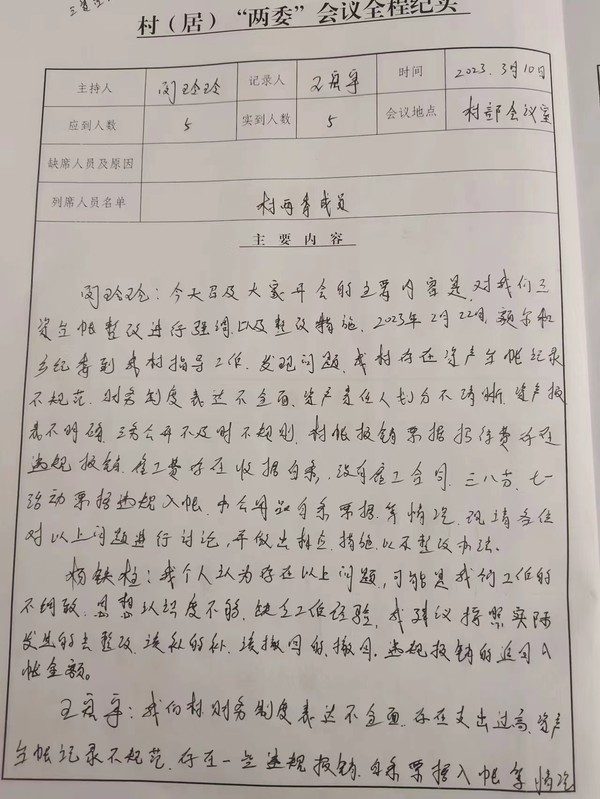 村（居）“两委”会议全程纪实
主持人 闵玲玲 记录人 王宾宇 时间 2023.3月10日
应到人数 5 实到人数 5 会议地点 村部会议室
缺席人员及原因
列席人员名单 村两委成员
主要内容
闵玲玲：今天召及大家开会的主要内容是，对我们三
资台帐整改进行强调以及整改措施。2023年2月22日，额尔和
乡纪委到我村指导工作，发现问题，我村存在资产台帐记录
不规范，财务制度表达不全面，资产责任人划分不清晰，资产报
表不明确，三务公开不及时不规则，村帐报销票据招待费存在
违规报销，雇工费存在收据白条，没有雇工合同，三八节、七一
活动票据违规入帐，办公用品白条票据等情况，现请各位
对以上问题进行讨论，并做出措施以及整改办法。
杨铁柱：我个人认为存在以上问题，可能是我们工作的
不细致，思想认识度不够，缺乏工作经验，我建议按照实际
发生的去整改，该补的补，该撤回的撤回，违规报销的追回入
帐金额。
王宾宇：我们村财务制度表达不全面，存在支出过高，资产
台帐记录不规范，存在一些违规报销，白条票据入帐等情况